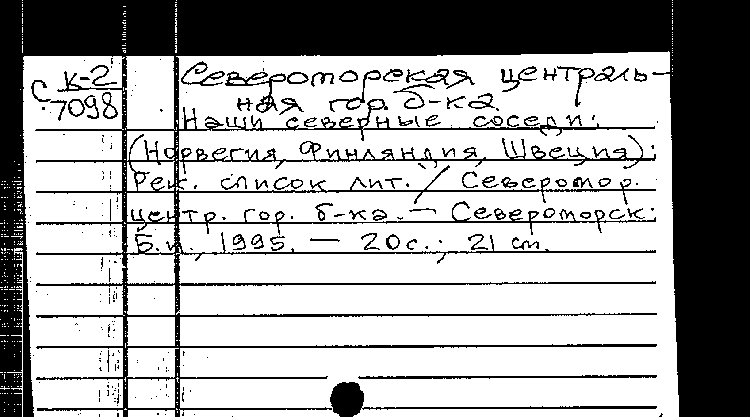 С К-2/7098
Североморская централь-
ная гор. б-ка.
Наши северные соседи:
(Норвегия, Финляндия, Швеция):
Рек. список лит. / Северомор.
центр. гор. б-ка. — Североморск:
Б.и., 1995. — 20с.; 21 см.